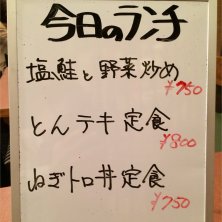 今日のランチ
塩鮭と野菜炒め
¥750
とんテキ定食
¥800
ねぎトロ丼定食
¥750